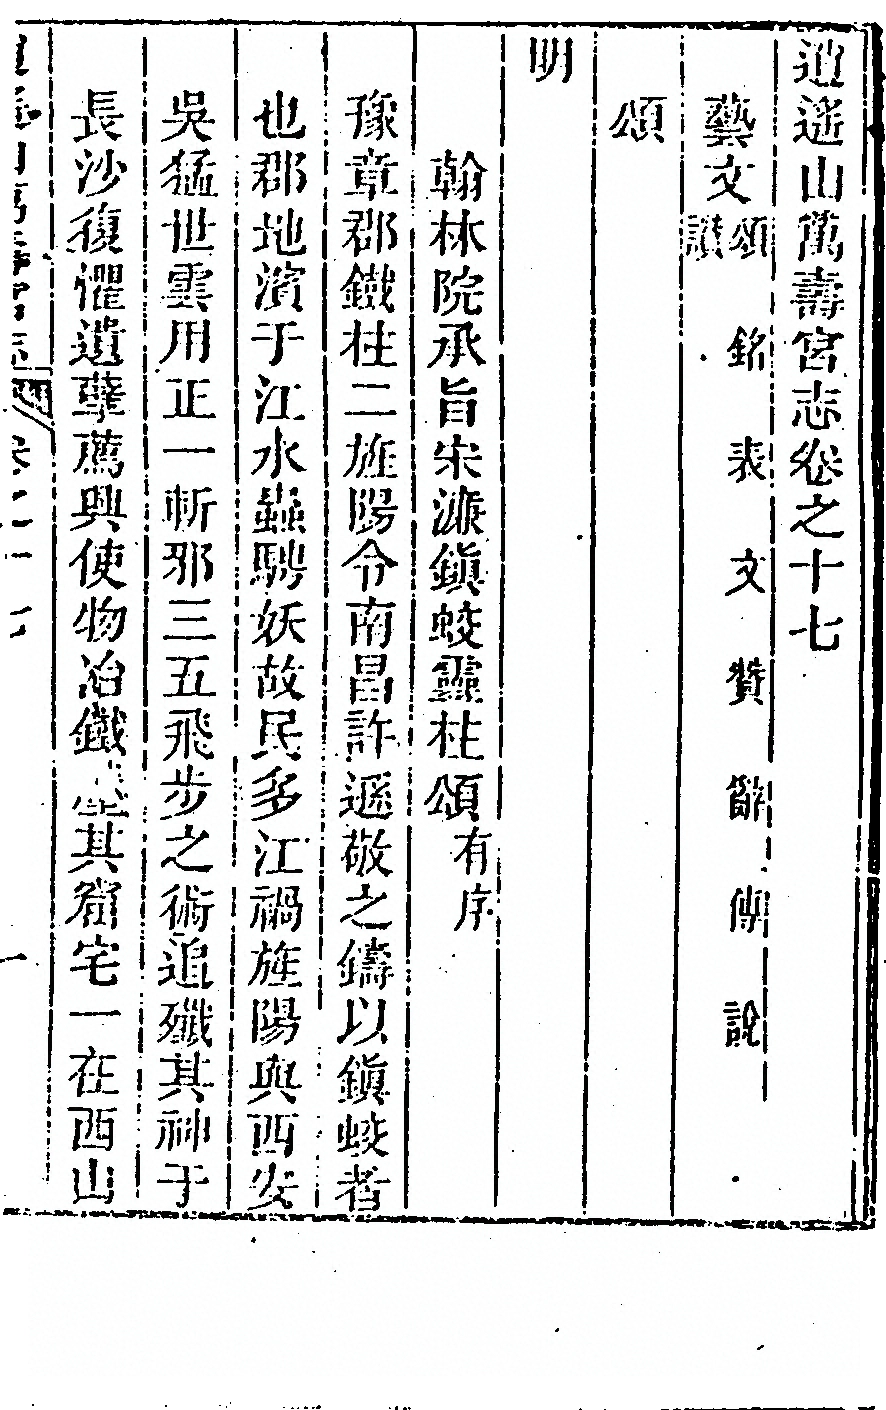 逍遙山萬壽宮志卷之十七
藝文頌 銘 表 文 贊 辭 傳 說
讖
頌
明
翰林院承旨宋濂鎮蛟靈柱頌有序
豫章郡鐵柱二旌陽令南昌許遜敬之鑄以鎮蛟者
也郡地濱于江水蟲騁妖故民多江禍旌陽與西安
吳猛世雲用正一斬邪三五飛步之術追殲其神于
長沙復懼遺孽薦興使物冶鐵 其窟宅一在西山
萬壽宮志 卷之十七 一